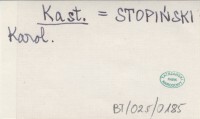 Kast. = STOPIŃSKI
Karol.
BJ/025/0185